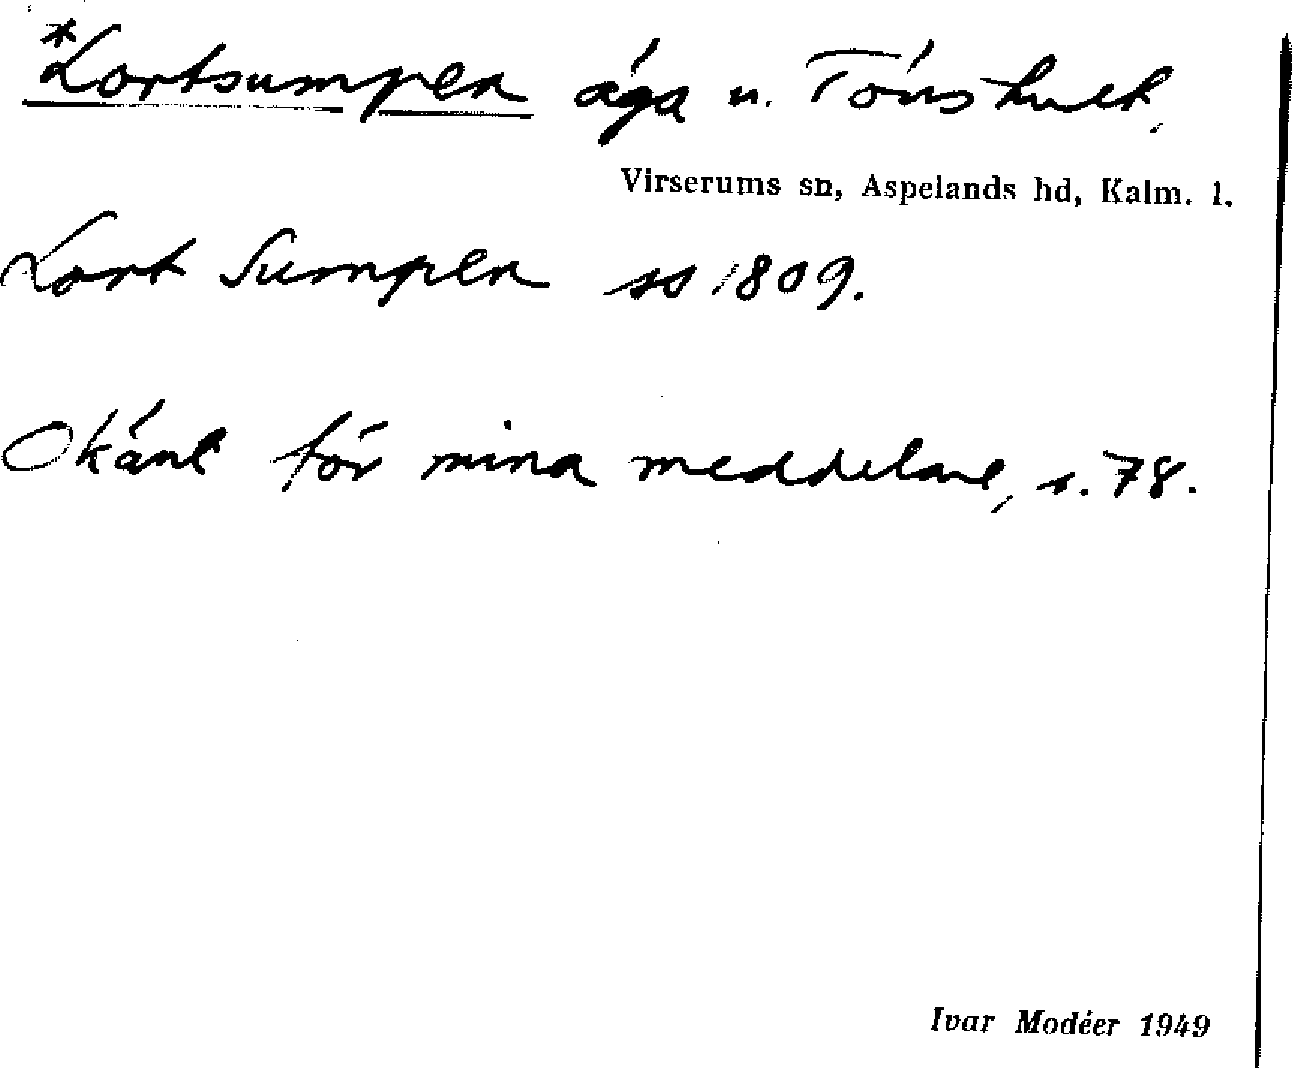 *Lortsumpen äga u. Tönshult,
Virserums sn, Aspelands hd, Kalm. l.
Lort Sumpen ss 1809.
Okänt för mina meddelare, s. 78.
Ivar Modéer 1949